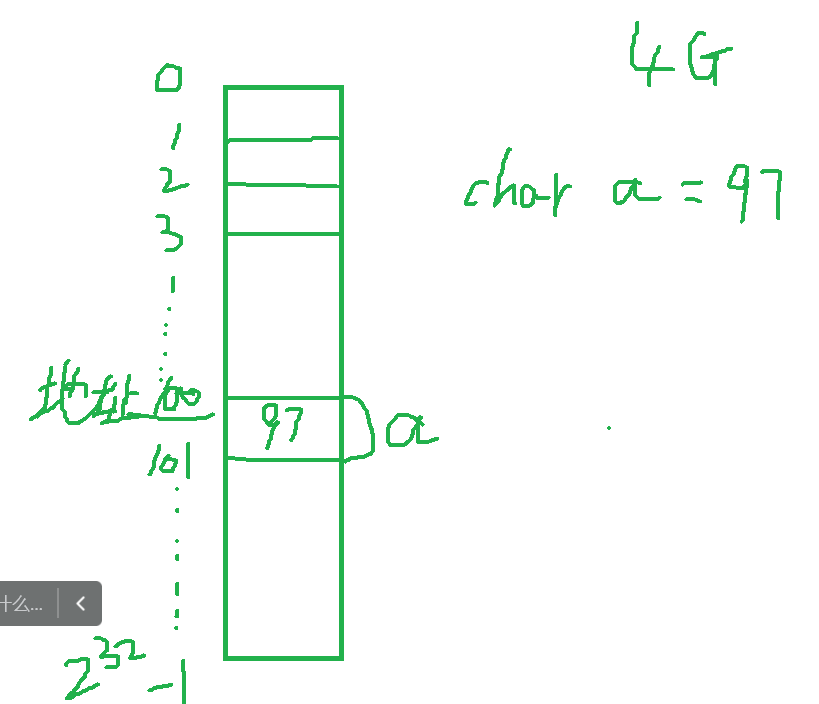 4G
0
1
char a = 97
2
3
地址 100
97
a
101
什么...
2³²-1